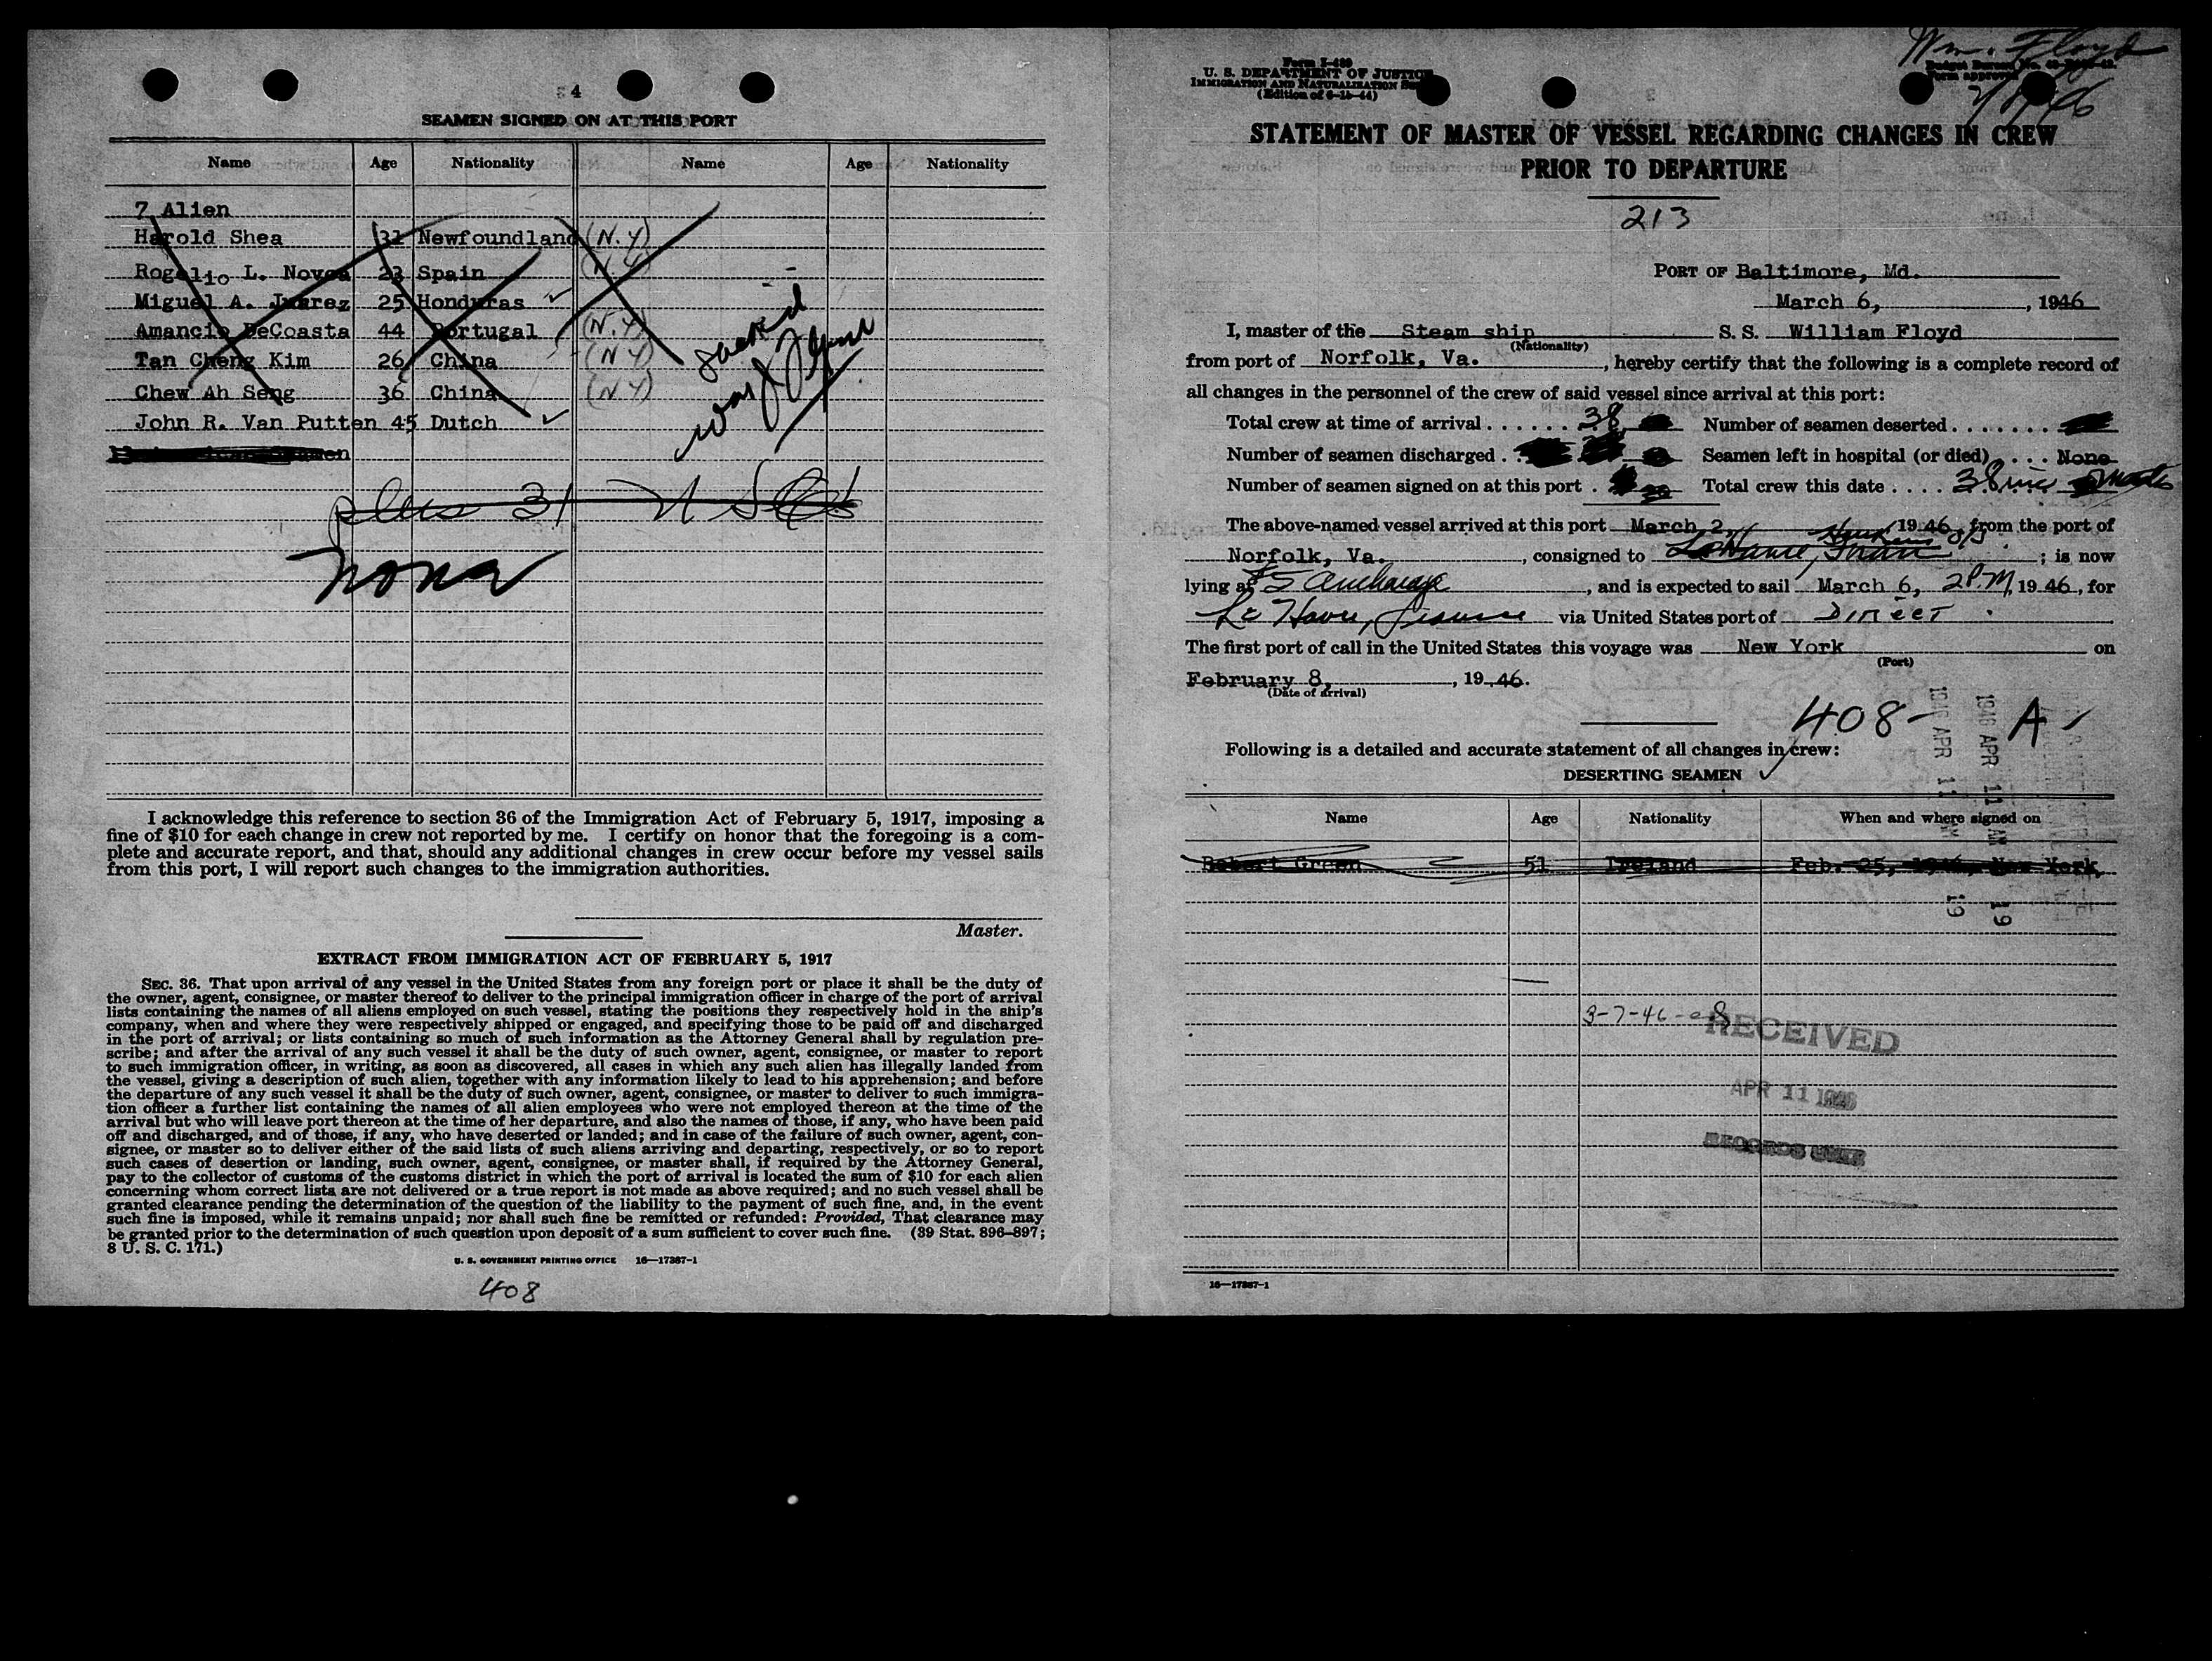 4
SEAMEN SIGNED ON AT THIS PORT
Name Age Nationality Name Age Nationality
7 Alien
Harold Shea 31 Newfoundland (N.Y)
Rogelio L. Novoa 23 Spain (N Y)
Miguel A. Juarez 25 Honduras
Amancio DeCoasta 44 Portugal (N.Y)
Tan Cheng Kim 26 China (N Y)
Chew Ah Seng 36 China (N Y)
John R. Van Putten 45 Dutch
plus 31
None
I acknowledge this reference to section 36 of the Immigration Act of February 5, 1917, imposing a
fine of $10 for each change in crew not reported by me. I certify on honor that the foregoing is a com-
plete and accurate report, and that, should any additional changes in crew occur before my vessel sails
from this port, I will report such changes to the immigration authorities.
Master.
EXTRACT FROM IMMIGRATION ACT OF FEBRUARY 5, 1917
SEC. 36. That upon arrival of any vessel in the United States from any foreign port or place it shall be the duty of
the owner, agent, consignee, or master thereof to deliver to the principal immigration officer in charge of the port of arrival
lists containing the names of all aliens employed on such vessel, stating the positions they respectively hold in the ship's
company, when and where they were respectively shipped or engaged, and specifying those to be paid off and discharged
in the port of arrival; or lists containing so much of such information as the Attorney General shall by regulation pre-
scribe; and after the arrival of any such vessel it shall be the duty of such owner, agent, consignee, or master to report
to such immigration officer, in writing, as soon as discovered, all cases in which any such alien has illegally landed from
the vessel, giving a description of such alien, together with any information likely to lead to his apprehension; and before
the departure of any such vessel it shall be the duty of such owner, agent, consignee, or master to deliver to such immigra-
tion officer a further list containing the names of all alien employees who were not employed thereon at the time of the
arrival but who will leave port thereon at the time of her departure, and also the names of those, if any, who have been paid
off and discharged, and of those, if any, who have deserted or landed; and in case of the failure of such owner, agent, con-
signee, or master so to deliver either of the said lists of such aliens arriving and departing, respectively, or so to report
such cases of desertion or landing, such owner, agent, consignee, or master shall, if required by the Attorney General,
pay to the collector of customs of the customs district in which the port of arrival is located the sum of $10 for each alien
concerning whom correct lists are not delivered or a true report is not made as above required; and no such vessel shall be
granted clearance pending the determination of the question of the liability to the payment of such fine, and, in the event
such fine is imposed, while it remains unpaid; nor shall such fine be remitted or refunded: Provided, That clearance may
be granted prior to the determination of such question upon deposit of a sum sufficient to cover such fine. (39 Stat. 896–897;
8 U. S. C. 171.)
U. S. GOVERNMENT PRINTING OFFICE 16—17387-1
408
Wm. Floyd
Form I-489
U. S. DEPARTMENT OF JUSTICE
IMMIGRATION AND NATURALIZATION
(Edition of 6-15-44)
Form approved
STATEMENT OF MASTER OF VESSEL REGARDING CHANGES IN CREW
PRIOR TO DEPARTURE
213
PORT OF Baltimore, Md.
March 6, 1946
I, master of the Steam ship S. S. William Floyd
(Nationality)
from port of Norfolk, Va., hereby certify that the following is a complete record of
all changes in the personnel of the crew of said vessel since arrival at this port:
Total crew at time of arrival 38 Number of seamen deserted
Number of seamen discharged Seamen left in hospital (or died) None
Number of seamen signed on at this port Total crew this date 38 inc Master
The above-named vessel arrived at this port March 2, 1946, from the port of
Norfolk, Va., consigned to ; is now
lying at Anchorage, and is expected to sail March 6, 2 P.M, 1946, for
Le Havre, France via United States port of DIRECT
The first port of call in the United States this voyage was New York on
(Port)
February 8, 1946.
(Date of arrival)
408- A
1946 APR 11 AM
1946 APR 11 AM
Following is a detailed and accurate statement of all changes in crew:
DESERTING SEAMEN
Name Age Nationality When and where signed on
Robert Green 51 Ireland Feb. 25, 1946, New York,
19 19
3-7-46
RECEIVED
APR 11 1946
RECORDS UNIT
16—17387-1